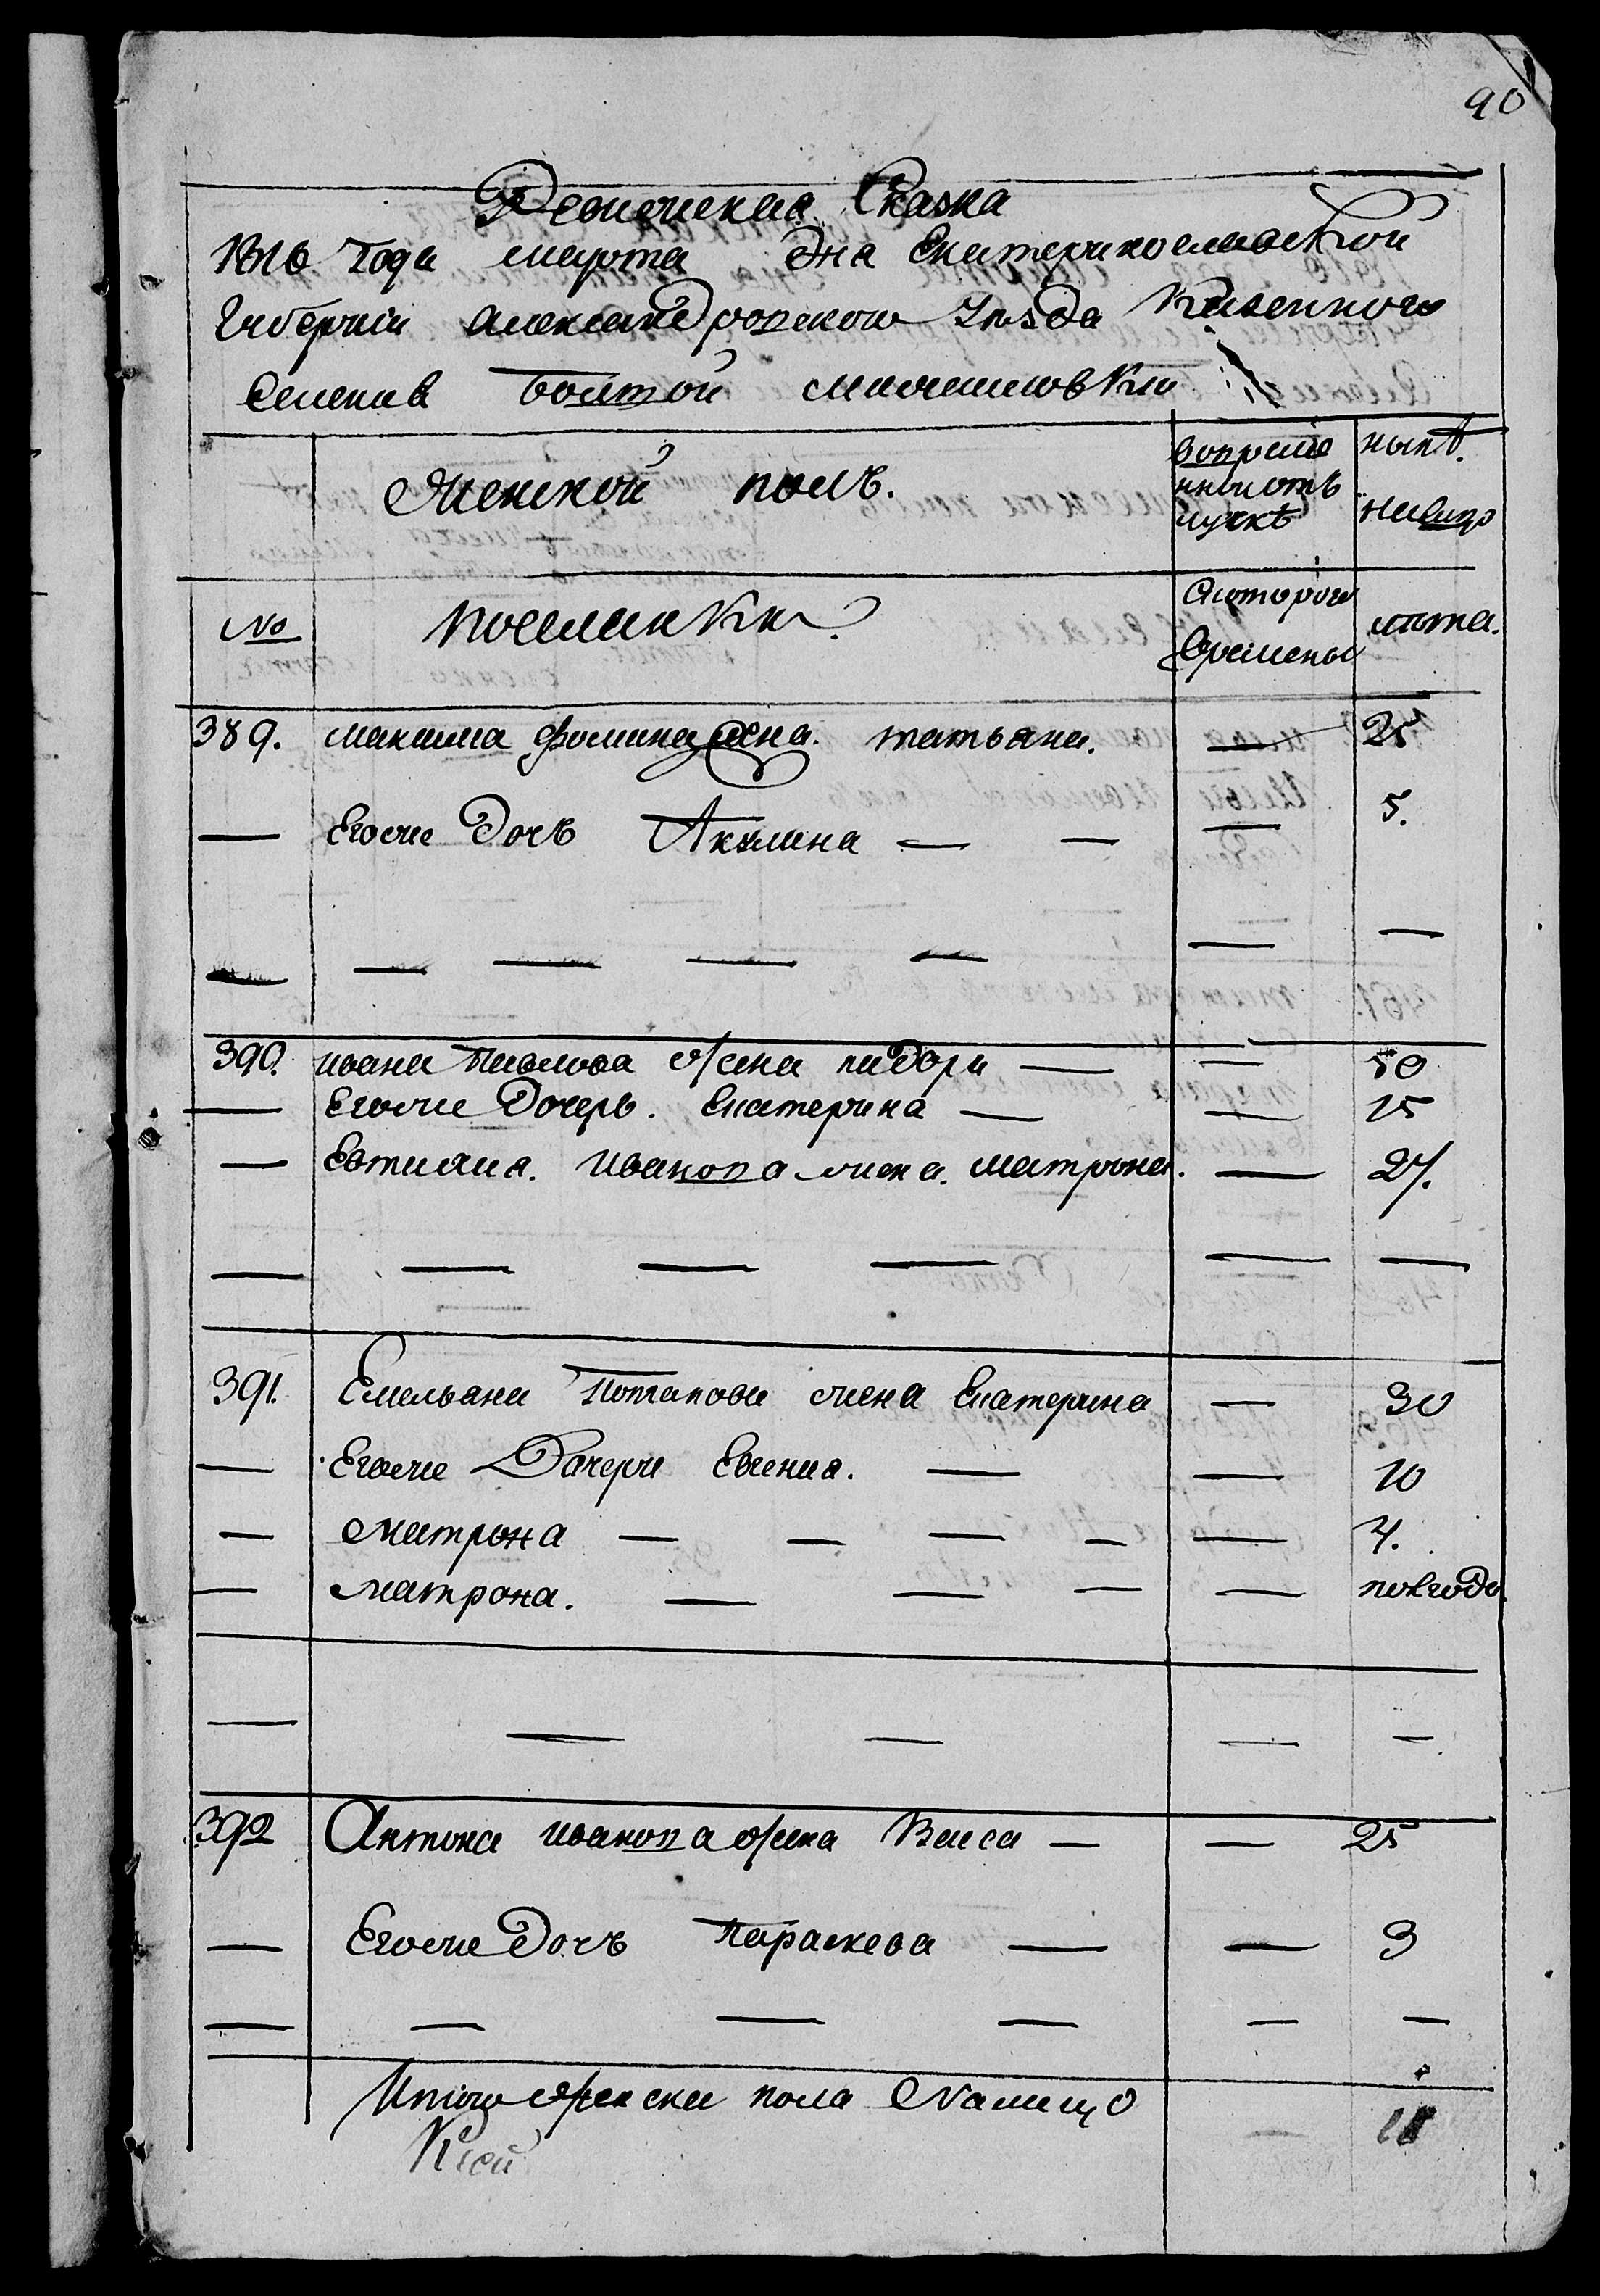 90
Ревижская Сказка
1816 Года марта дна Екатеринославской
Губернiи Александровского Уѣзда Казенного
Селенiя Болшой Михайловки
Женской полъ.
вовремѣ
нной отъ
лучкѣ
нынѣ.
налицо
№
поселянки
Скоторого
времены
лѣта.
389. Максима Фомина жена. татьяна. — 25
— Егоже Дочь Акилина — — — 5.
— — — — — — —
390. ивана Павлова жена падора — — 50
— Егоже Дочерь. Екатерина — — 15
— Евтихия. Иванова жена. матрона. — 27.
— — — — — —
391. Емельана Потапова жена Екатерина — 30
— Егоже Дочери Евгения. — — 10
— Матрона — — — — — 4.
— Матрона. — — — — полгода.
— — — — —
392 Антона иванова жена Васса — — 25
— Егоже Дочь Параскева — — 3
— — — — — —
Итого женска пола Налицо — 11